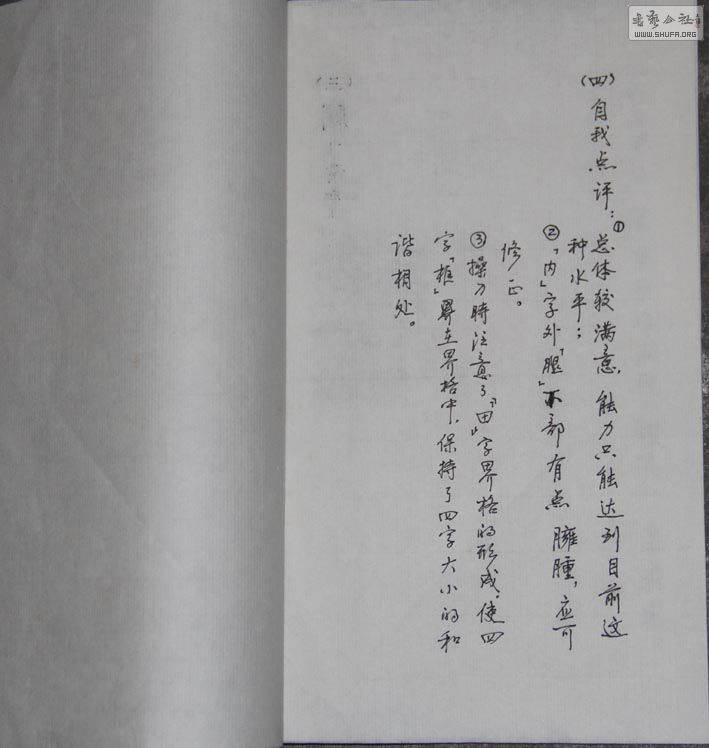 (四)自我点评：①总体较满意，能力只能达到目前这
种水平；
②「内」字外「腿」下部有点臃腫，应可
修正。
③操刀時注意了「田」字界格的形成，使四
字「框」畀在界格中，保持了四字大小的和
谐相处。
書藝公社
WWW.SHUFA.ORG